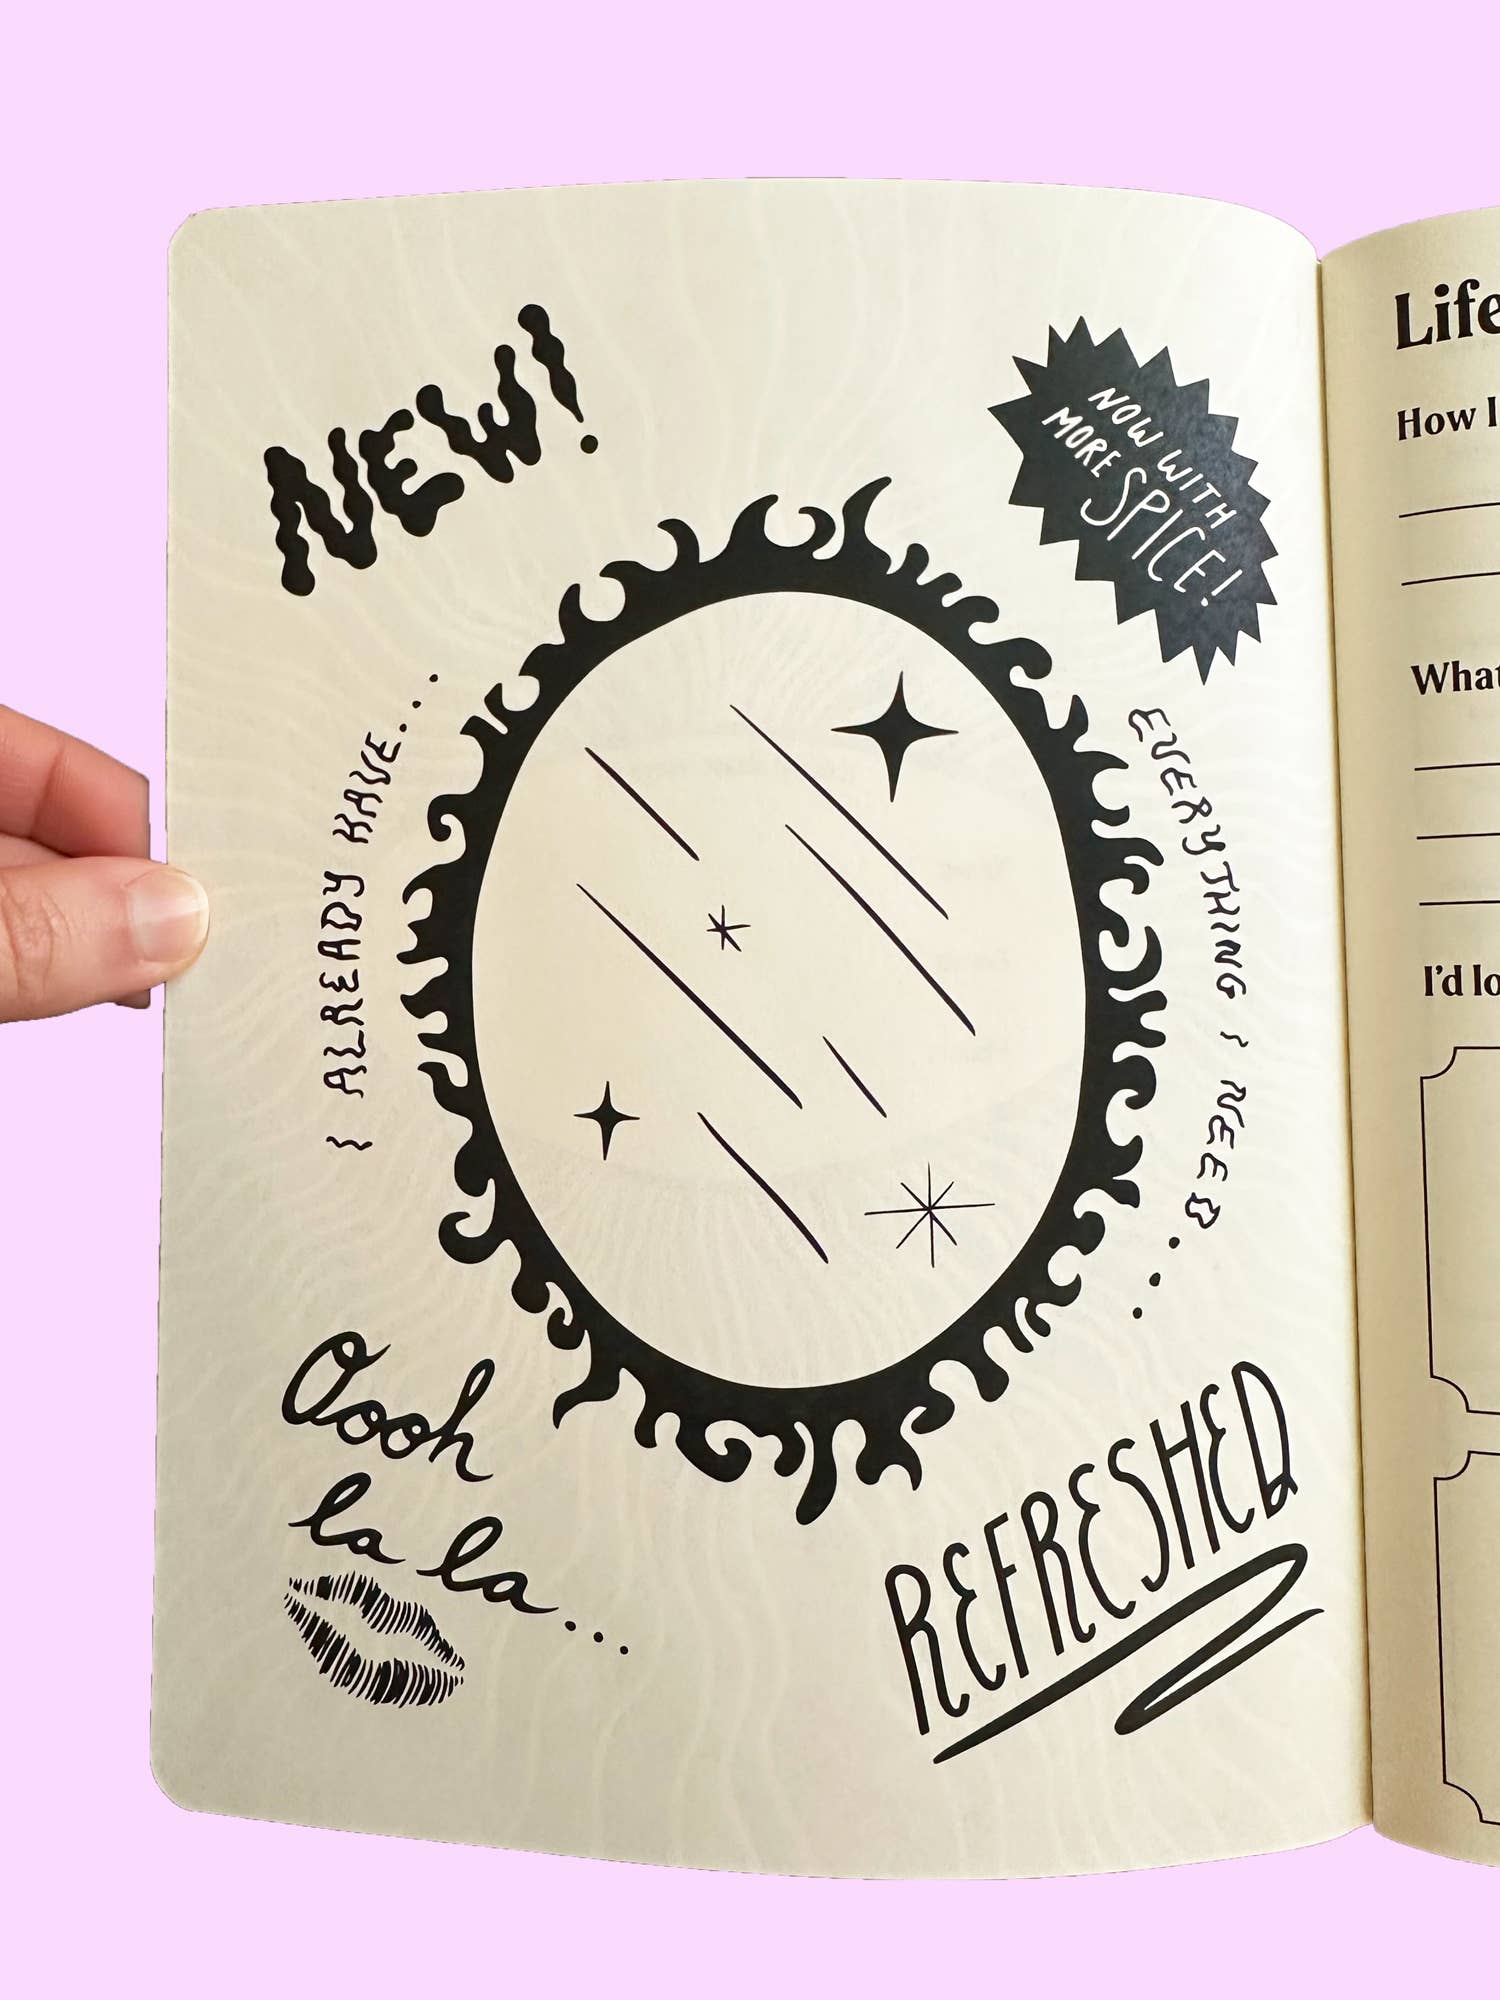 NEW!
NOW WITH
MORE SPICE!
I ALREADY HAVE...
EVERYTHING I NEED...
Oooh
la la...
REFRESHED
Life
How I
What
I'd lo